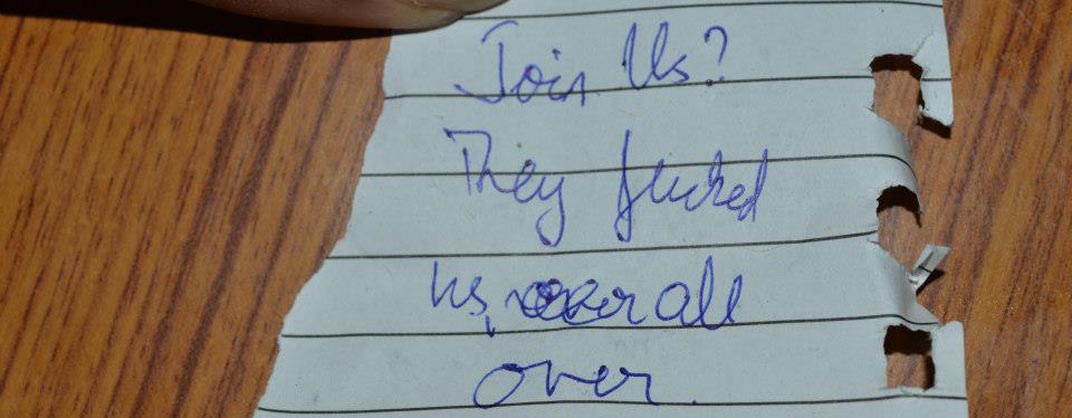 Join Us?
They fucked
us, over all
over.